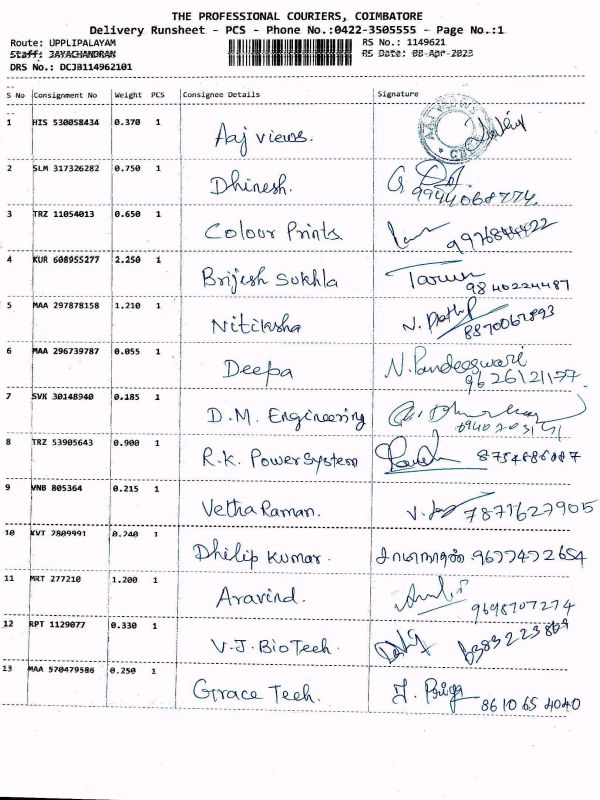 THE PROFESSIONAL COURIERS, COIMBATORE
Delivery Runsheet - PCS - Phone No.:0422-3505555 - Page No.:1
Route: UPPLIPALAYAM RS No.: 1149621
Staff: JAYACHANDRAN RS Date: 08-Apr-2023
DRS No.: DCJB114962101
S No Consignment No Weight PCS Consignee Details Signature
1 HIS 530058434 0.370 1 Aaj views.
2 SLM 317326282 0.750 1 Dhinesh. 9944068774.
3 TRZ 11054013 0.650 1 Colour Prints
4 KUR 608955277 2.250 1 Brijesh Sukhla Tarun
9840224487
5 MAA 297878158 1.210 1 Nitiksha
8870067893
6 MAA 296739787 0.055 1 Deepa N. Pandeeswari
9626121177
7 SVK 30148940 0.185 1 D.M. Engineering
8 TRZ 53905643 0.900 1 R.K. Power System
9 VNB 805364 0.215 1 Vetha Raman. 7871627905
10 KVT 2809991 0.240 1 Dhilip Kumar. 9677472654
11 MRT 277210 1.200 1 Aravind.
9698707274
12 RPT 1129077 0.330 1 V.J. BioTech.
13 MAA 570479586 0.250 1 Grace Tech. J. Priya
8610654040